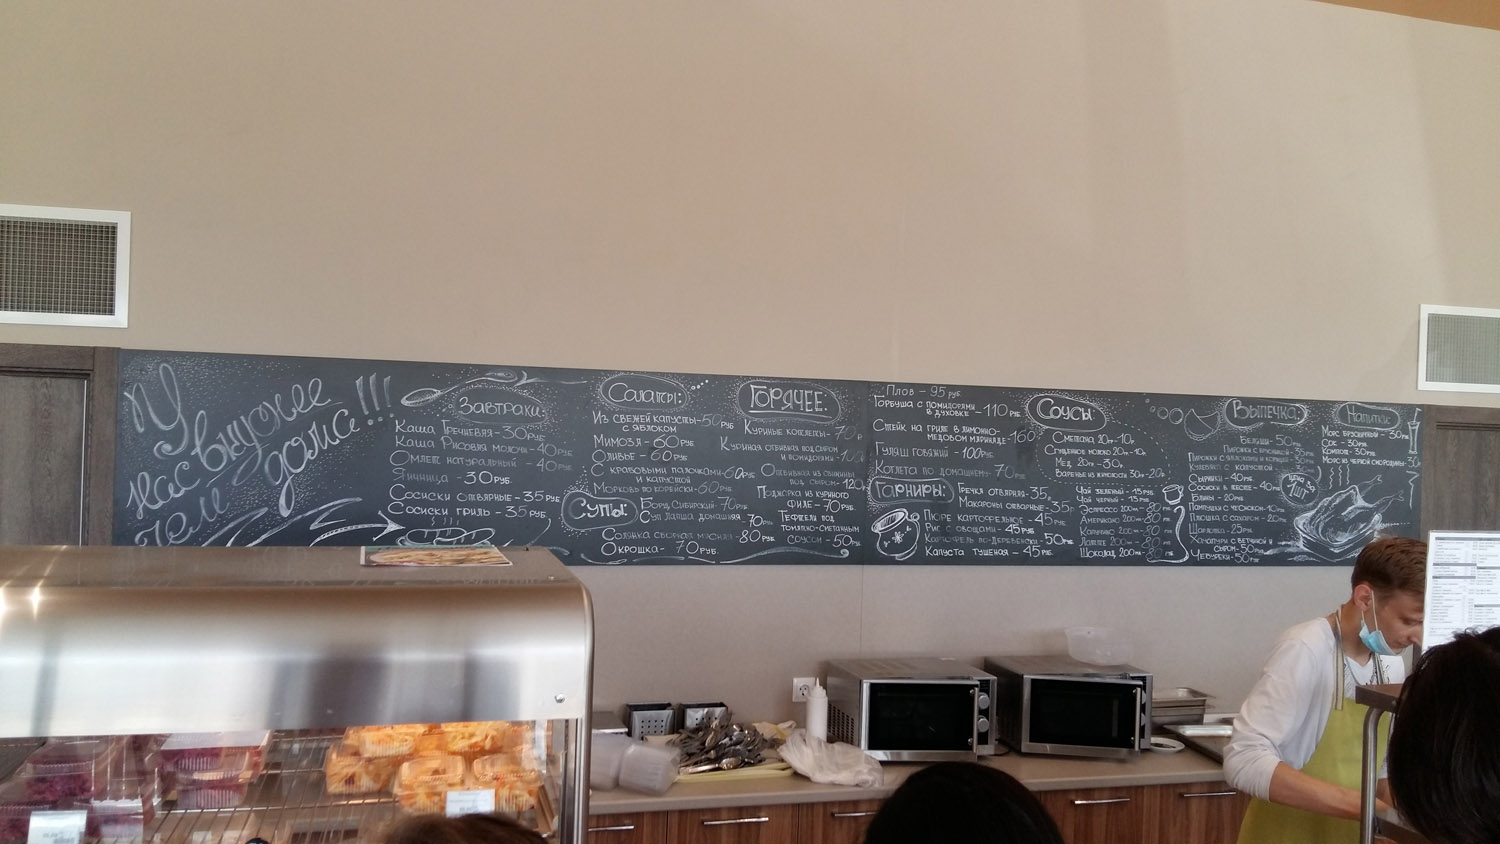 У
нас вкуснее
чем дома!!!
Завтраки:
Каша Гречневая - 30 руб.
Каша Рисовая молочн - 40 руб.
Омлет натуральный - 40 руб.
Яичница - 30 руб.
Сосиски отварные - 35 руб.
Сосиски гриль - 35 руб.
Салаты:
Из свежей капусты - 50 руб.
с яблоком
Мимоза - 60 руб.
Оливье - 60 руб.
С крабовыми палочками - 60 руб.
и капустой
Морковь по корейски - 60 руб.
Супы:
Борщ Сибирский - 70 руб.
Суп лапша домашняя - 70 руб.
Солянка сборная мясная - 80 руб.
Окрошка - 70 руб.
Горячее:
Куриные котлеты - 70 р
Куриная отбивная под сыром
и помидорами
Отбивная из свинины
под сыром - 120
Поджарка из куриного
филе - 70 руб.
Тефтели под
томатно-сметанным
соусом - 50 руб.
Плов - 95 руб.
Горбуша с помидорами
в духовке - 110 руб.
Стейк на гриле в лимонно-
медовом маринаде - 160
Гуляш говяжий - 100 руб.
Котлета по домашнему - 70 руб.
Гарниры:
Гречка отварная - 35,
Макароны отварные - 35р
Пюре картофельное - 45 руб.
Рис с овощами - 45 руб.
Картофель по-деревенски - 50 руб.
Капуста тушеная - 45 руб.
Соусы:
Сметана 20гр - 10р.
Сгущенное молоко 20гр - 10р.
Мед 20гр - 30р.
Варенье из жимолости 30гр - 20р.
Чай зеленый - 15 руб
Чай черный - 15 руб
Эспрессо 100мл - 80 руб
Американо 200мл - 80 руб
Капучино 200мл - 80 руб
Латте 200мл - 80 руб
Шоколад 200мл - 80 руб
Выпечка:
Беляш - 50 руб.
Пирожки с яблоками и корицей
с капустой
Сырники - 40 руб
Сосиски в тесте - 40 руб
Блины - 20 руб
Пампушки с чесноком - 10 руб
Плюшка с сахаром - 20 руб
Шарлотка - 25 руб
с ветчиной и
сыром - 50 руб
Чебуреки - 50 руб
Цена за
1шт
Напитки:
Морс брусничный - 30 руб
Сок - 30 руб.
Компот - 30 руб.
Морс из черной смородины - 30